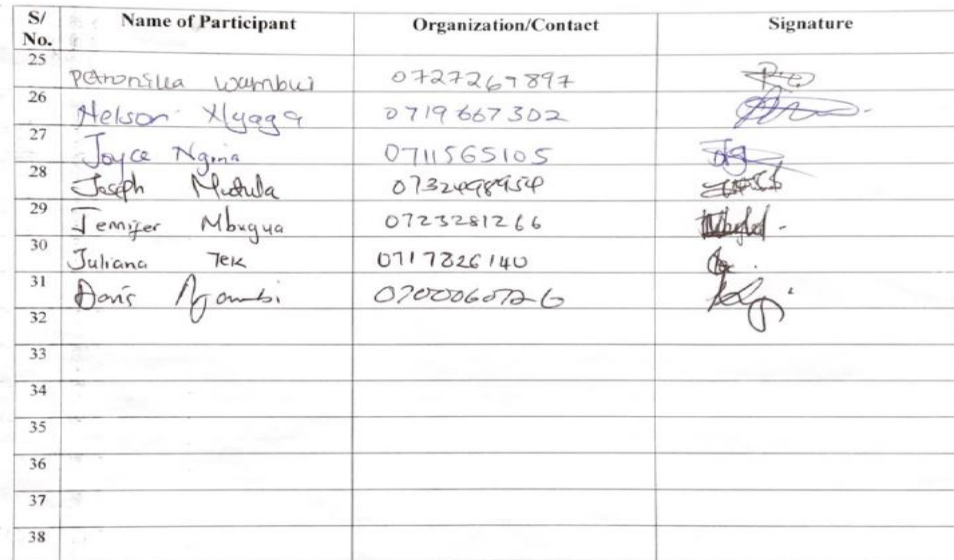 S/No. Name of Participant Organization/Contact Signature
25 Petronilla Wambui 0727267897
26 Nelson Nyaga 0719667302
27 Joyce Ngina 0711565105
28 Joseph Mutula 0732498954
29 Jennifer Mbugua 0723281266
30 Juliana Tek 0717826140
31 Doris 0700060726
32
33
34
35
36
37
38